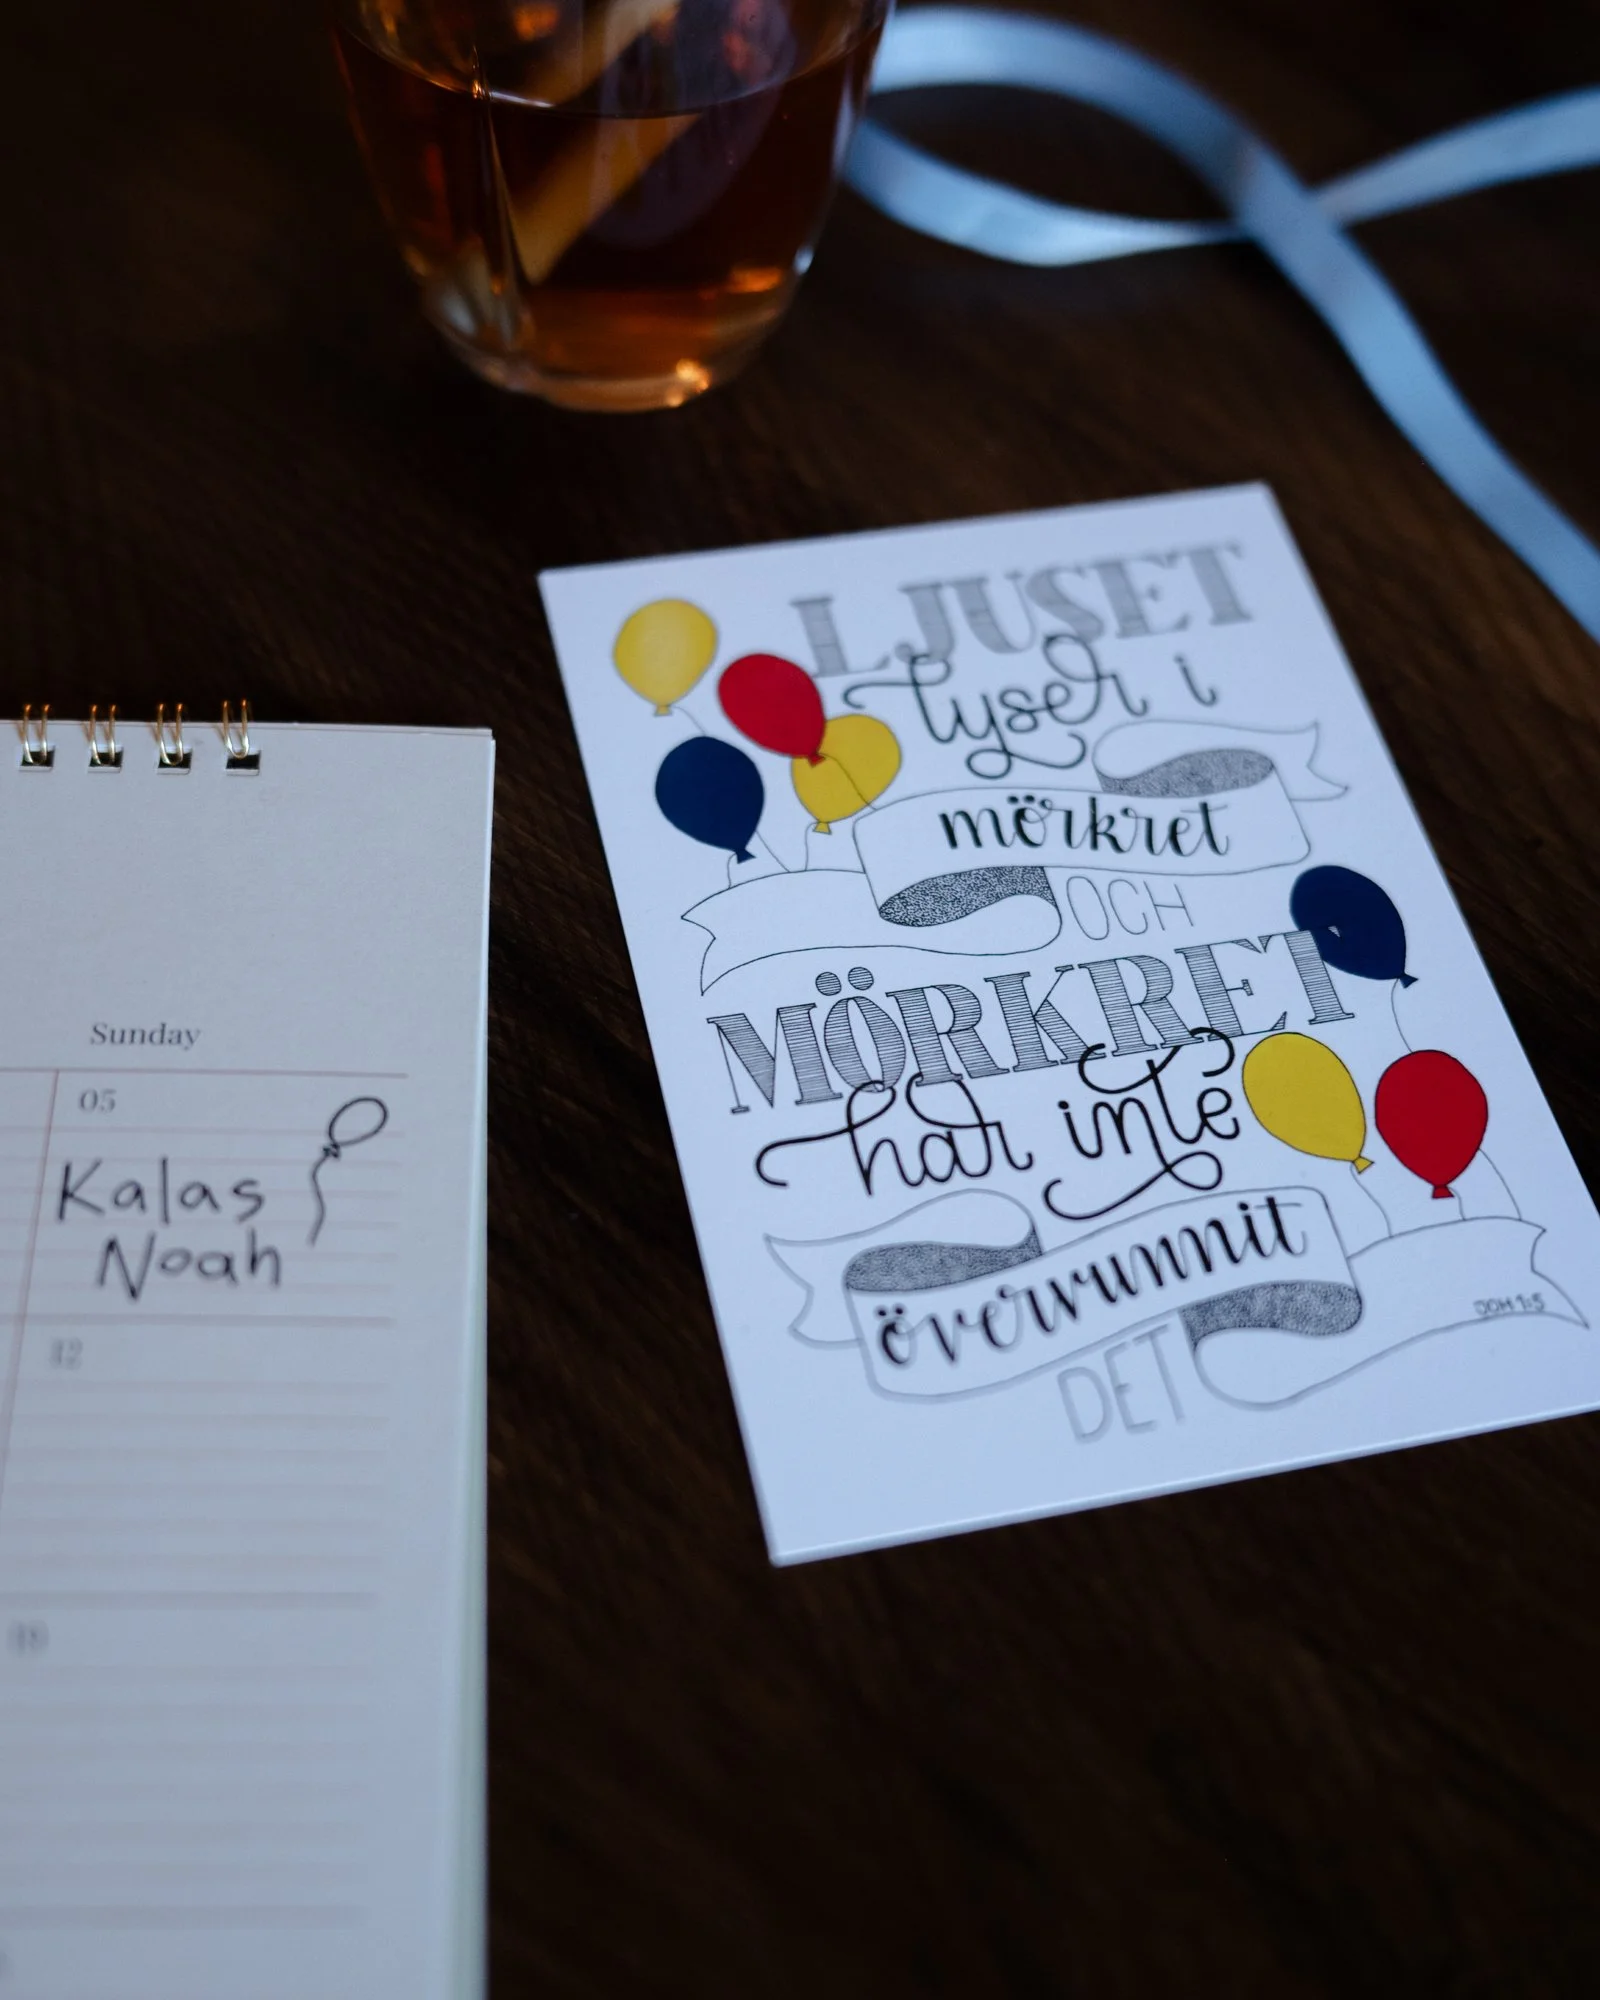 Sunday
05
Kalas
Noah
12
19
LJUSET
lyser i
mörkret
OCH
MÖRKRET
har inte
övervunnit
DET
JOH 1:5